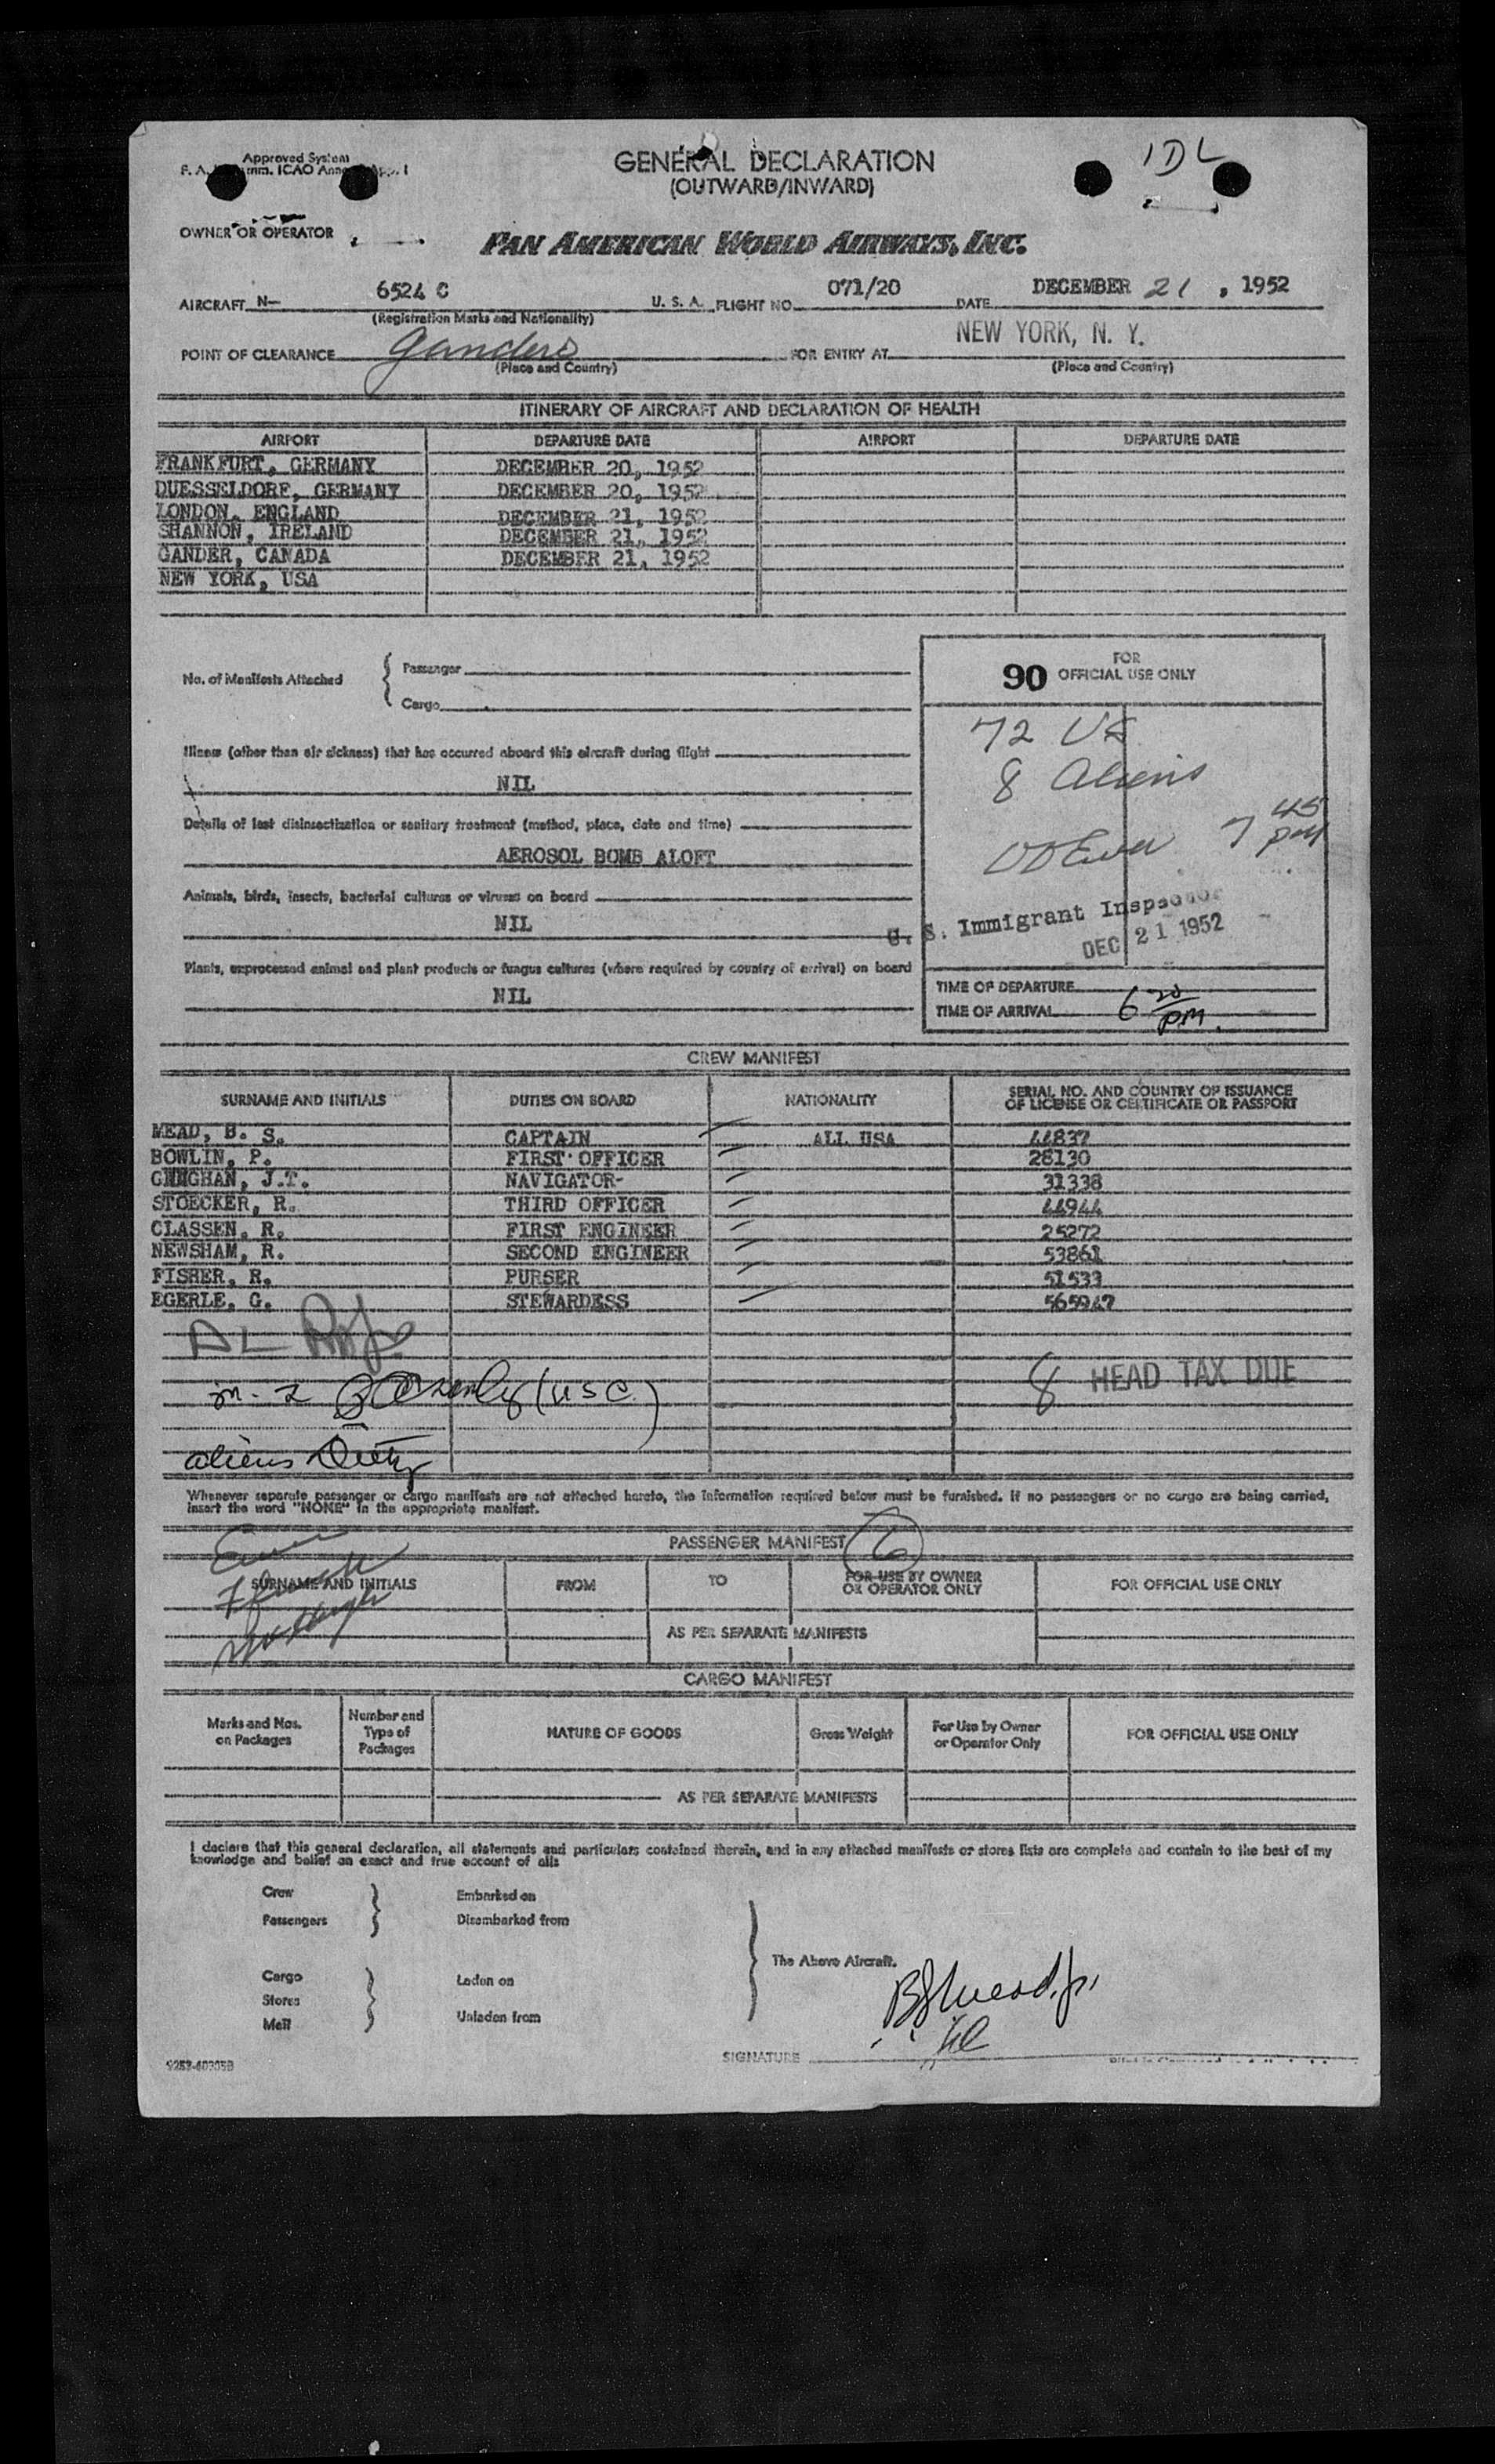 Approved System
GENERAL DECLARATION
(OUTWARD/INWARD)
IDL
OWNER OR OPERATOR
PAN AMERICAN WORLD AIRWAYS, INC.
AIRCRAFT N- 6524 C U. S. A. FLIGHT NO. 071/20 DATE DECEMBER 21, 1952
(Registration Marks and Nationality)
POINT OF CLEARANCE Gander FOR ENTRY AT NEW YORK, N. Y.
(Place and Country) (Place and Country)
ITINERARY OF AIRCRAFT AND DECLARATION OF HEALTH
AIRPORT DEPARTURE DATE AIRPORT DEPARTURE DATE
FRANKFURT, GERMANY DECEMBER 20, 1952
DUESSELDORF, GERMANY DECEMBER 20, 1952
LONDON, ENGLAND DECEMBER 21, 1952
SHANNON, IRELAND DECEMBER 21, 1952
GANDER, CANADA DECEMBER 21, 1952
NEW YORK, USA
No. of Manifests Attached { Passenger
Cargo
90 FOR OFFICIAL USE ONLY
72 US
8 Aliens
7 45 pm
U. S. Immigrant Inspector
DEC 21 1952
TIME OF DEPARTURE
TIME OF ARRIVAL 6 20 pm.
Illness (other than air sickness) that has occurred aboard this aircraft during flight
NIL
Details of last disinsectization or sanitary treatment (method, place, date and time)
AEROSOL BOMB ALOFT
Animals, birds, insects, bacterial cultures or viruses on board
NIL
Plants, unprocessed animal and plant products or fungus cultures (where required by country of arrival) on board
NIL
CREW MANIFEST
SURNAME AND INITIALS DUTIES ON BOARD NATIONALITY SERIAL NO. AND COUNTRY OF ISSUANCE
OF LICENSE OR CERTIFICATE OR PASSPORT
MEAD, B. S. CAPTAIN ALL USA 44837
BOWLIN, P. FIRST OFFICER 28130
J.T. NAVIGATOR- 31338
STOECKER, R. THIRD OFFICER 44944
CLASSEN, R. FIRST ENGINEER 25272
NEWSHAM, R. SECOND ENGINEER 53861
FISHER, R. PURSER 51533
EGERLE, G. STEWARDESS 565947
8 HEAD TAX DUE
(USC)
aliens
Whenever separate passenger or cargo manifests are not attached hereto, the information required below must be furnished. If no passengers or no cargo are being carried,
insert the word "NONE" in the appropriate manifest.
PASSENGER MANIFEST 6
SURNAME AND INITIALS FROM TO FOR USE BY OWNER
OR OPERATOR ONLY FOR OFFICIAL USE ONLY
AS PER SEPARATE MANIFESTS
CARGO MANIFEST
Marks and Nos.
on Packages Number and
Type of
Packages NATURE OF GOODS Gross Weight For Use by Owner
or Operator Only FOR OFFICIAL USE ONLY
AS PER SEPARATE MANIFESTS
I declare that this general declaration, all statements and particulars contained therein, and in any attached manifests or stores lists are complete and contain to the best of my
knowledge and belief an exact and true account of all:
Crew Embarked on
Passengers Disembarked from
The Above Aircraft.
Cargo Laden on
Stores
Mail Unladen from
BSMead, Jr.
SIGNATURE
9257-40305B